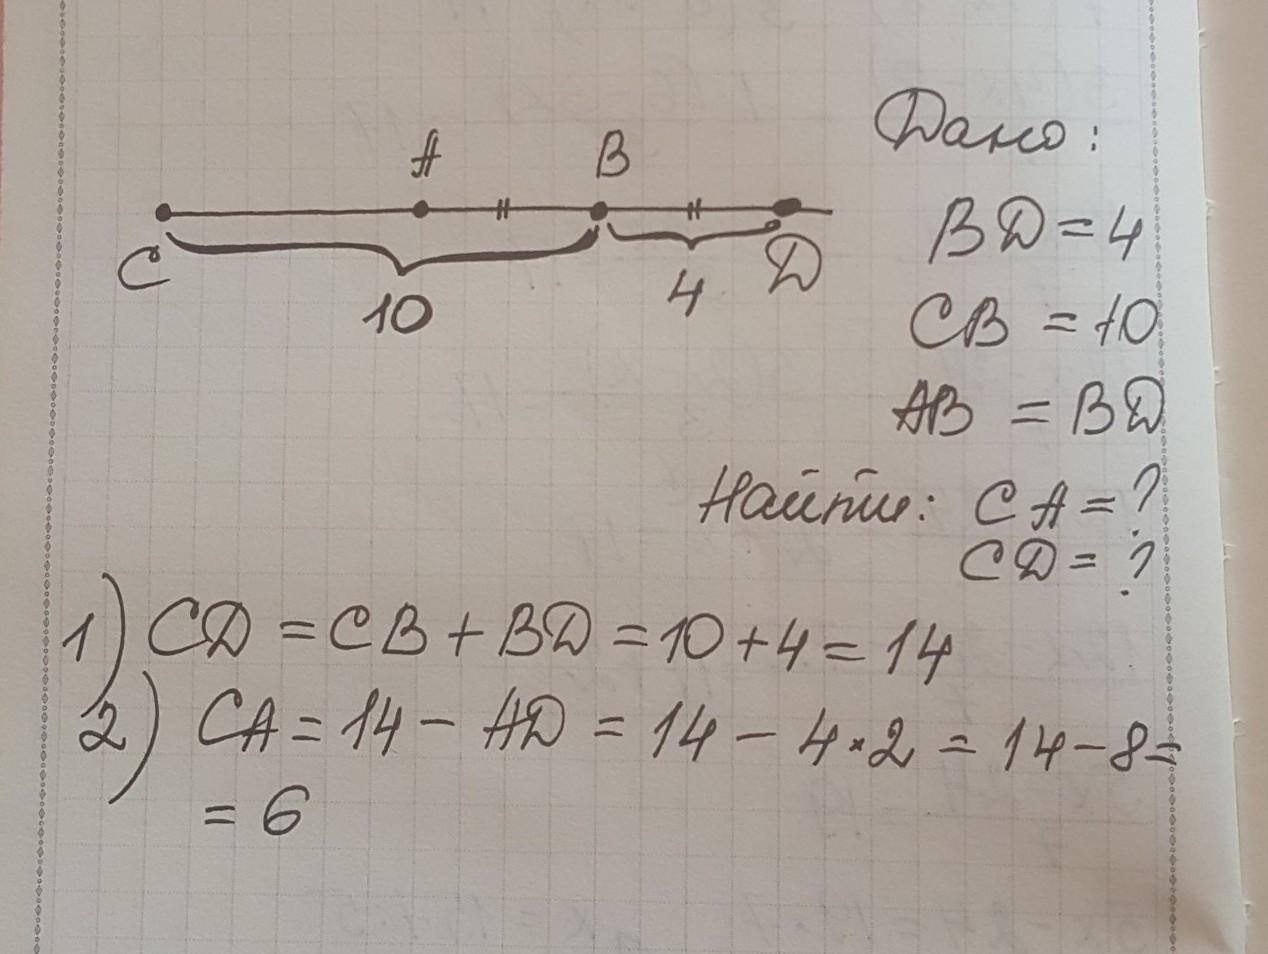 Дано:
A B
BD = 4
C D
10 4
CB = 10
AB = BD
Найти: CA = ?
CD = ?
1) CD = CB + BD = 10 + 4 = 14
2) CA = 14 - AD = 14 - 4 * 2 = 14 - 8 =
= 6